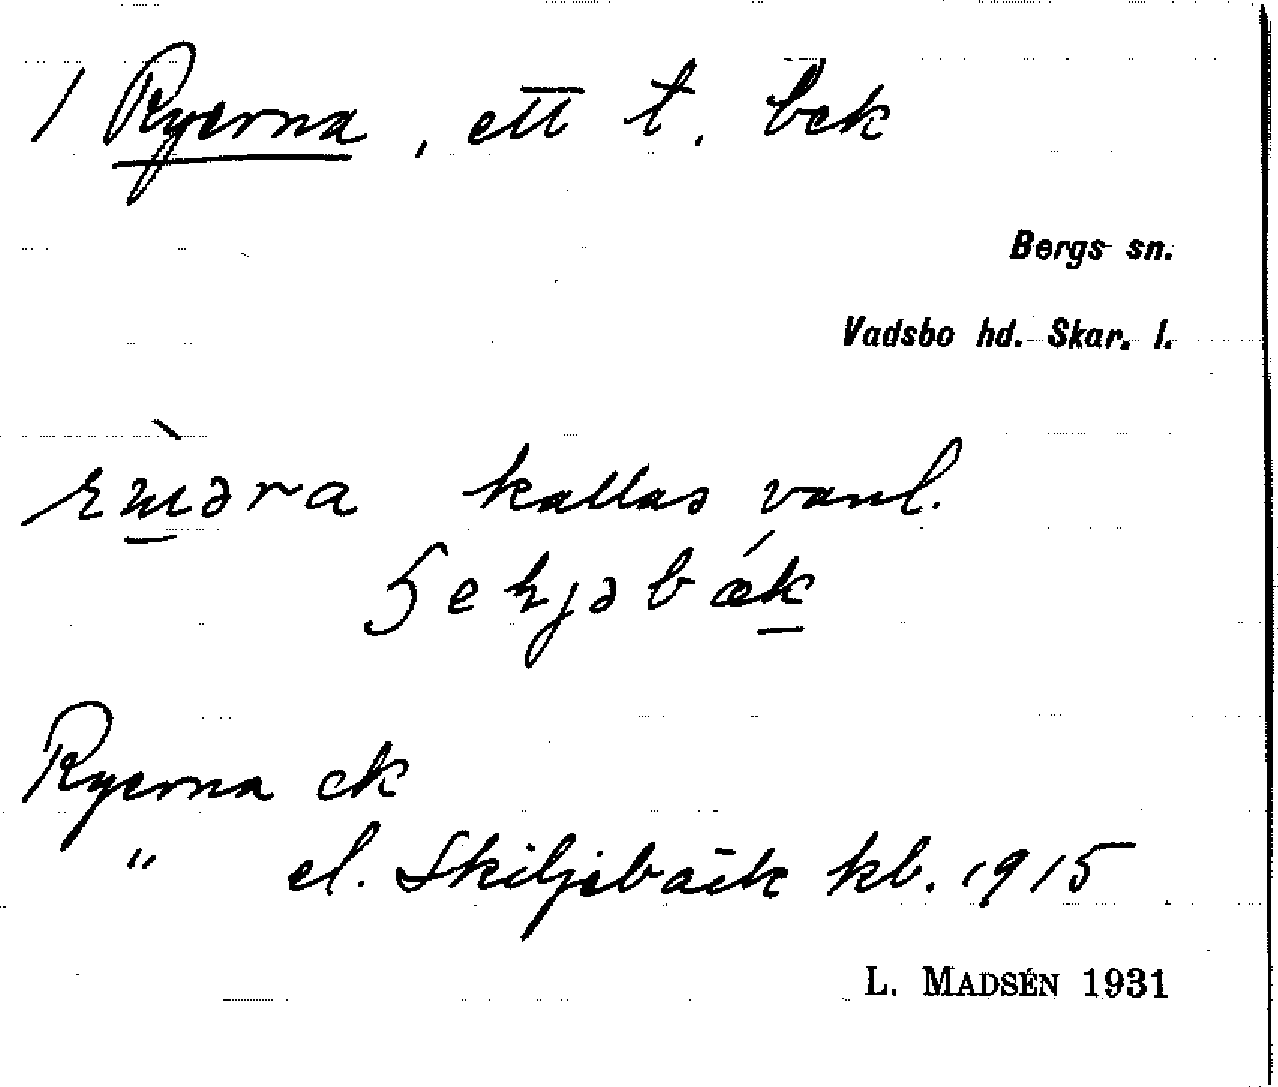 1 Ryerna, ett t. bek
Bergs sn.
Vadsbo hd. Skar. l.
kallas vanl.
Ryerna ek
" el. Skiljebäck kb. 1915
L. MADSÉN 1931